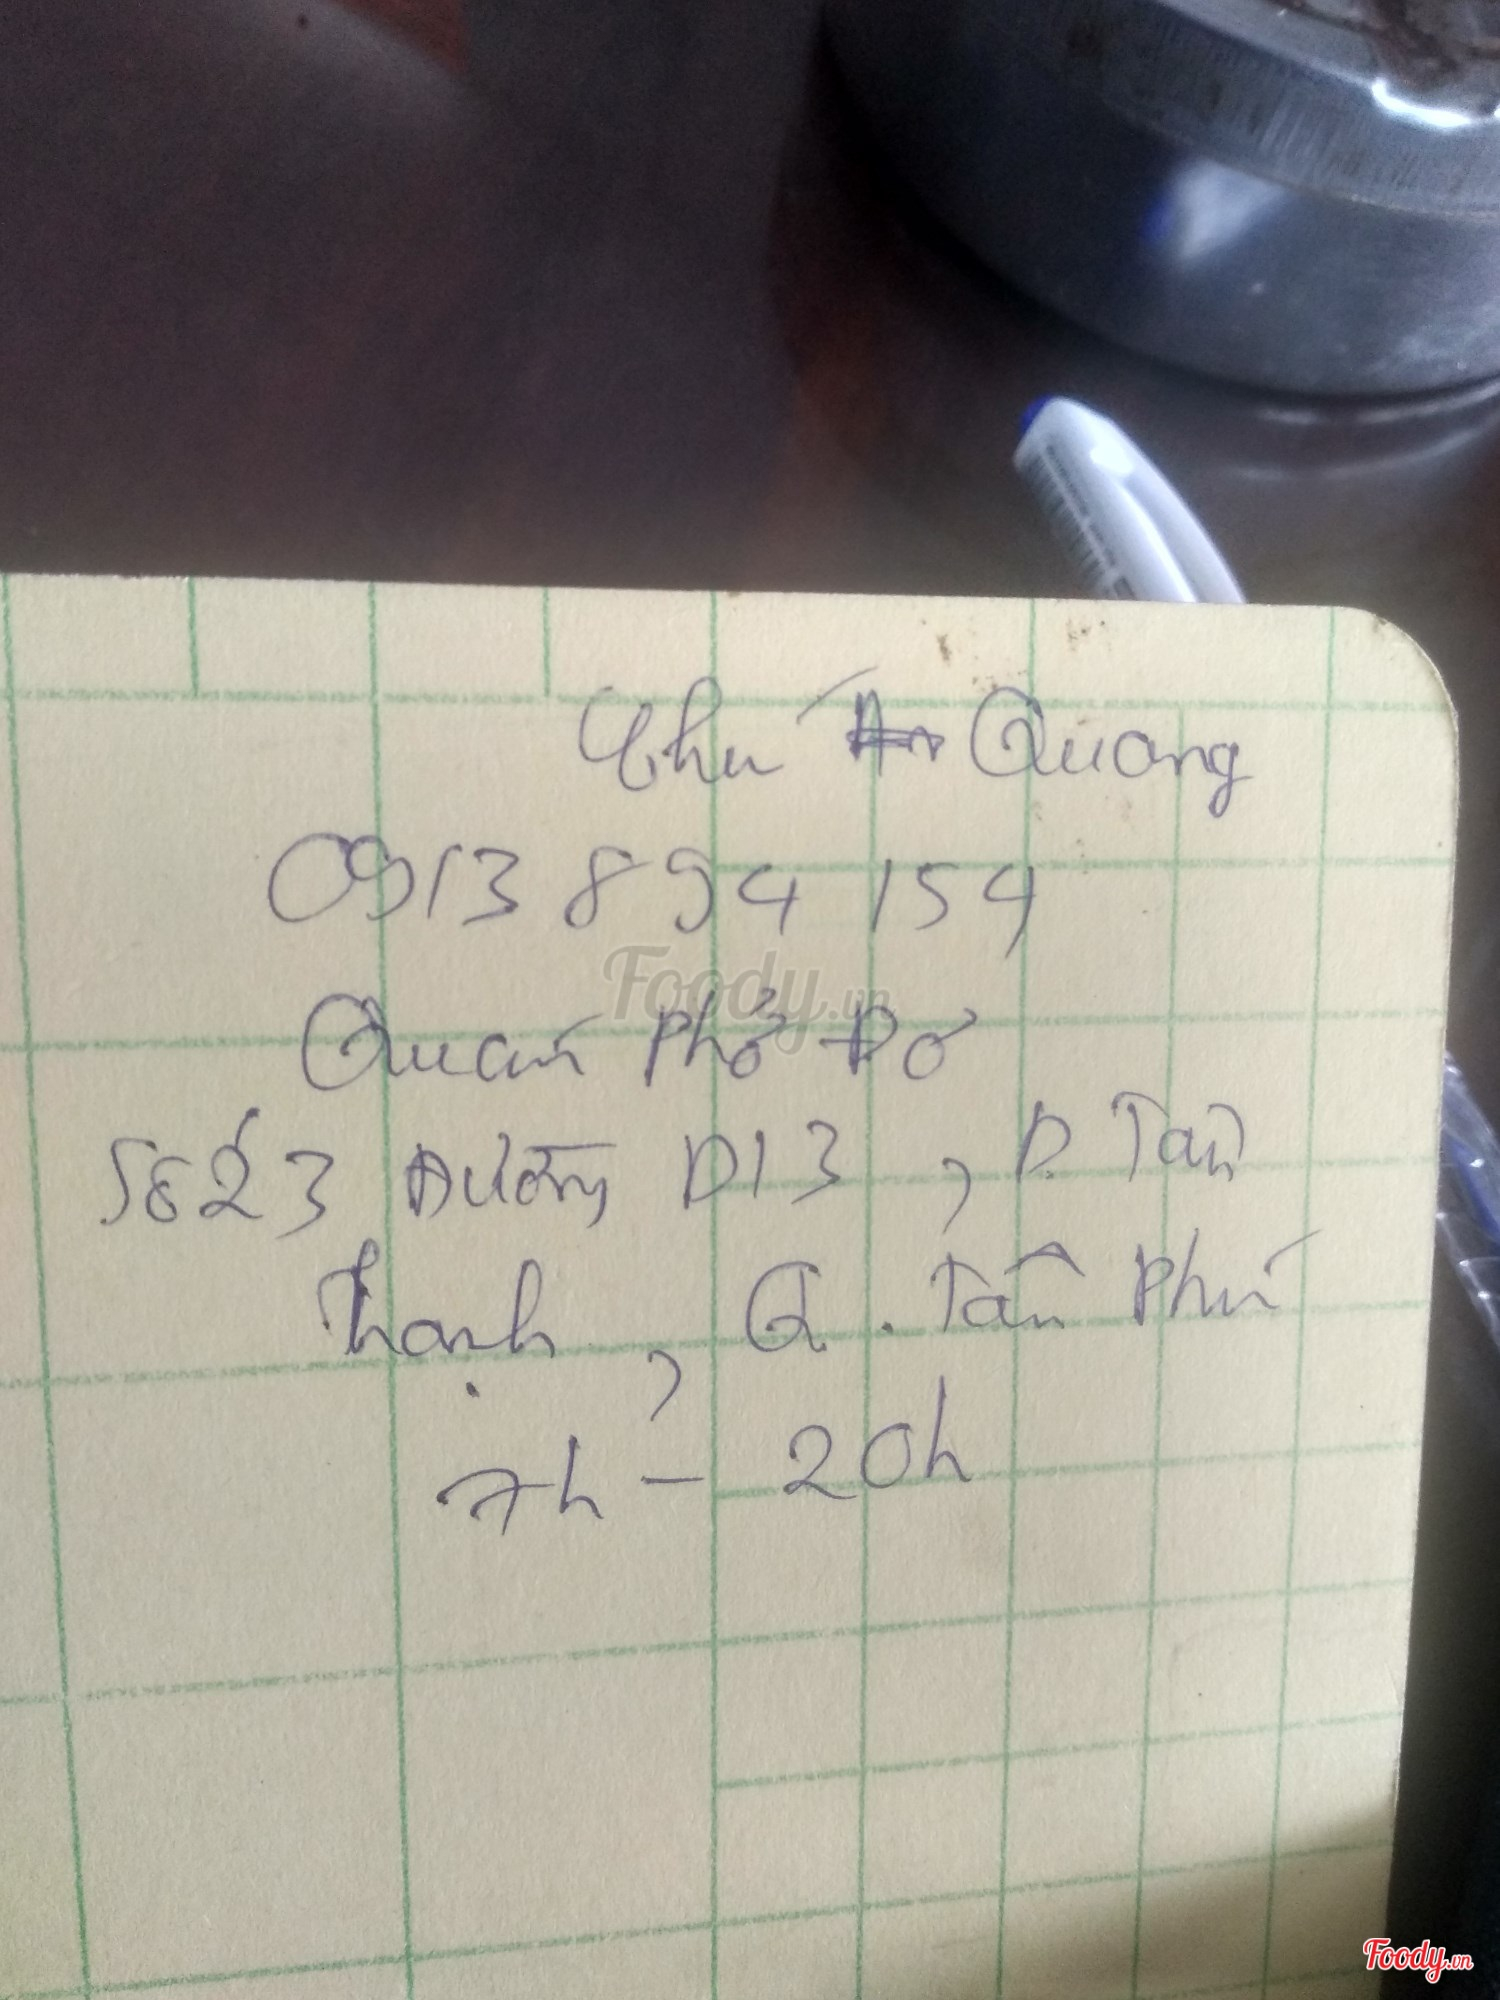 Chú Quang
0913 894 154
Foody.vn
Quán Phở Đơ
Số 23 Đường D13, P. Tân
Thạnh, Q. Tân Phú
7h - 20h
Foody.vn